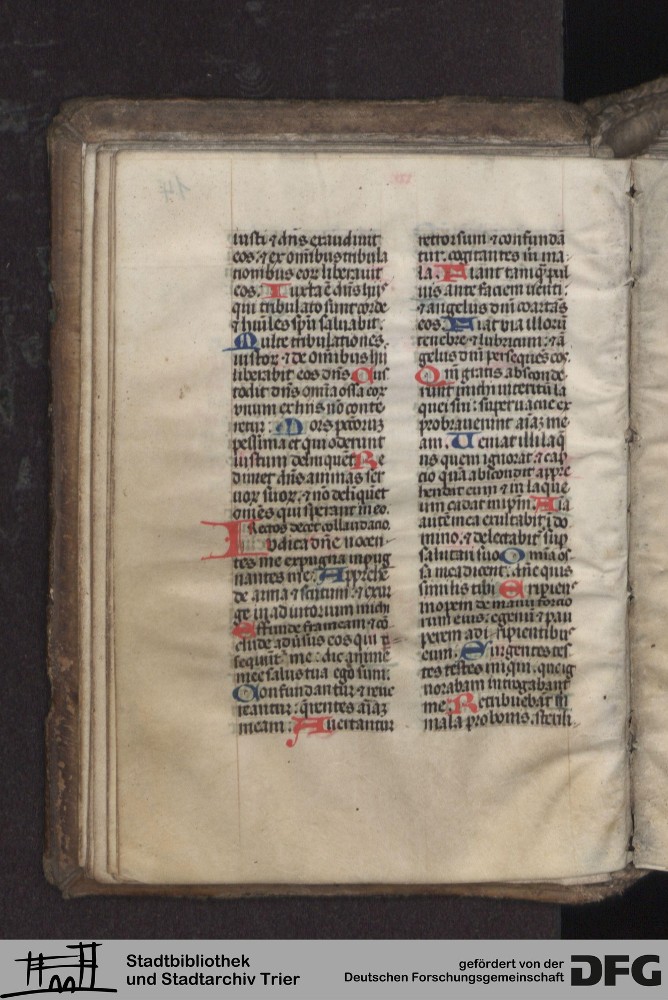 14
iusti ⁊ dn̄s exaudiuit
eos: ⁊ ex omībus tribula
tionibus eoꝝ liberauit
eos. Iuxta ē dn̄s hijs
qui tribulato sunt corde
⁊ hūiles spū saluabit.
Multe tribulationes
iustoꝝ: ⁊ de omībus hijs
liberabit eos dn̄s Cus
todit dn̄s om̄ia ossa eoꝝ
vnum ex hijs nō conte
retur: Mors pctōꝝ
pessima et qui oderunt
iustum delinquēt Re
dimet dn̄s animas ser
uoꝝ suoꝝ: ⁊ nō delīquēt
om̄es qui sperant in eo.
Rectos decet collaudatio.
Iudica dn̄e nocen
tes me expugna inpug
nantes me: Apprehē
de arma ⁊ scutum: ⁊ exur
ge in adiutorium michi
Effunde frameam ⁊ cō
clude adūsus eos qui p̄
sequūt͛ me: dic anime
mee salus tua ego sum:
Confundantur ⁊ reue
reantur: q̄rentes aīaꝫ
meam: Auertantur
retrorsum ⁊ confundā
tur: cogitantes m̄ ma
la. Fiant tamq̄ȝ pul
uis ante faciem uenti:
⁊ angelus dnī coartās
eos. Fiat via illorū
tenebre ⁊ lubricum: ⁊ ā
gelus dnī perseqūes eos.
Qm̄ gratis absconde
runt michi interitū la
quei sui: superuacue ex
probrauerunt aīaꝫ me
am. Veniat illi laq̄
us quem ignorat: ⁊ cap
cio quā abscondit appre
hendat eum ⁊ in laque
um cadat in ip̄m. Aīa
autē mea exultabit ī do
mino: ⁊ delectabit͛ suꝑ
salutari suo Om̄ia os
sa mea dicent: dn̄e quis
similis tibi Eripiens
inopem de manu forcio
rum eius: egenū ⁊ pau
perem a diripientibus
eum. Surgentes tes
tes iniqui: que ig
norabam interrogabant
me. Retribuebāt m̄
mala pro bonis: sterili
Stadtbibliothek
und Stadtarchiv Trier
gefördert von der
Deutschen Forschungsgemeinschaft
DFG